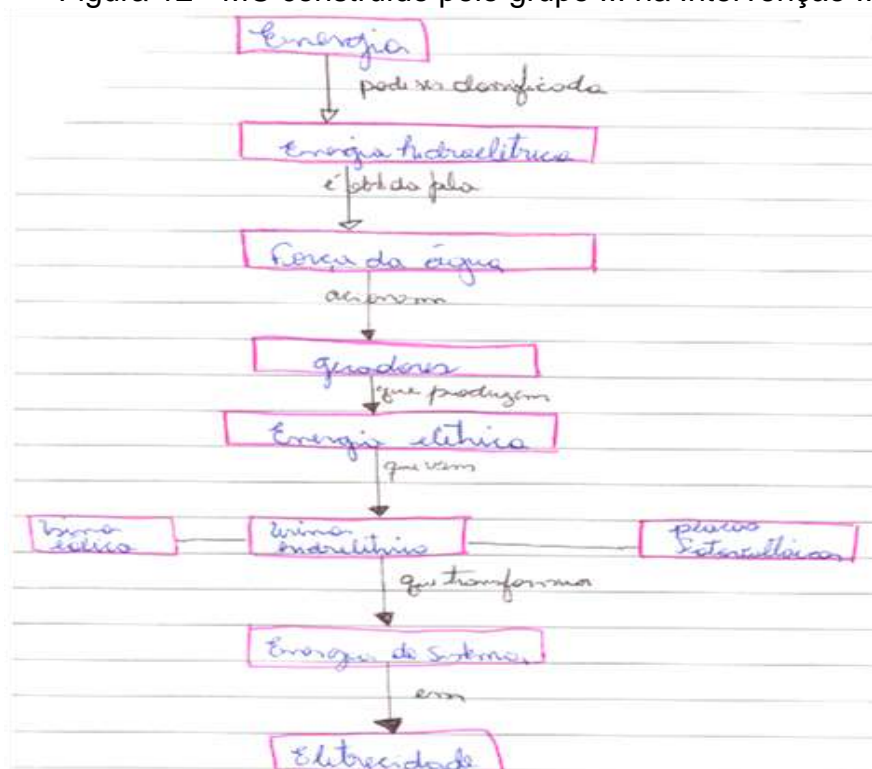 Figura 12 - MC construído pelo grupo III na intervenção
Energia
pode ser classificada
Energia hidraelitrica
é obtida pela
Força da água
acionam
geradores
que produzem
Energia elétrica
que vem
Usina
eólica
Usina
endrelítrica
placas
Fotovoltáicas
que transforma
Energia do sistema
em
Eletrecidade